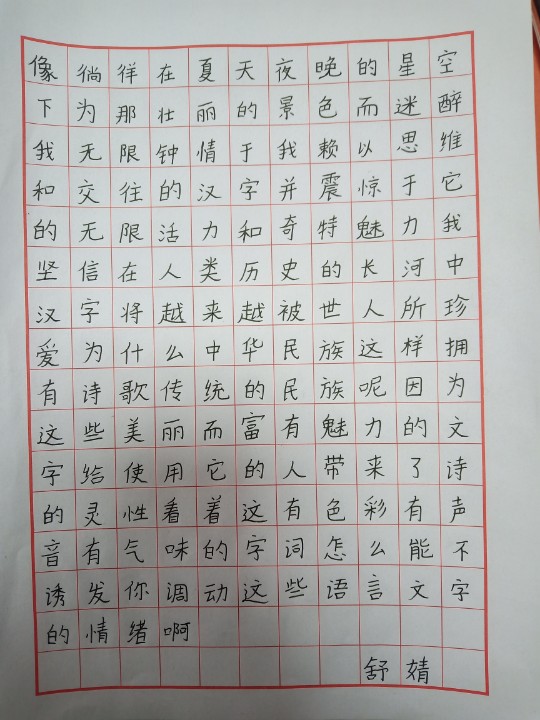 像徜徉在夏天夜晚的星空
下为那壮丽的景色而迷醉
我无限钟情于我赖以思维
和交往的汉字并震惊于它
的无限活力和奇特魅力我
坚信在人类历史的长河中
汉字将越来越被世人所珍
爱为什么中华民族这样拥
有诗歌传统的民族呢因为
这些美丽而富有魅力的文
字给使用它的人带来了诗
的灵性看着这有色彩有声
音有气味的字词怎么能不
诱发你调动这些语言文字
的情绪啊
舒婧